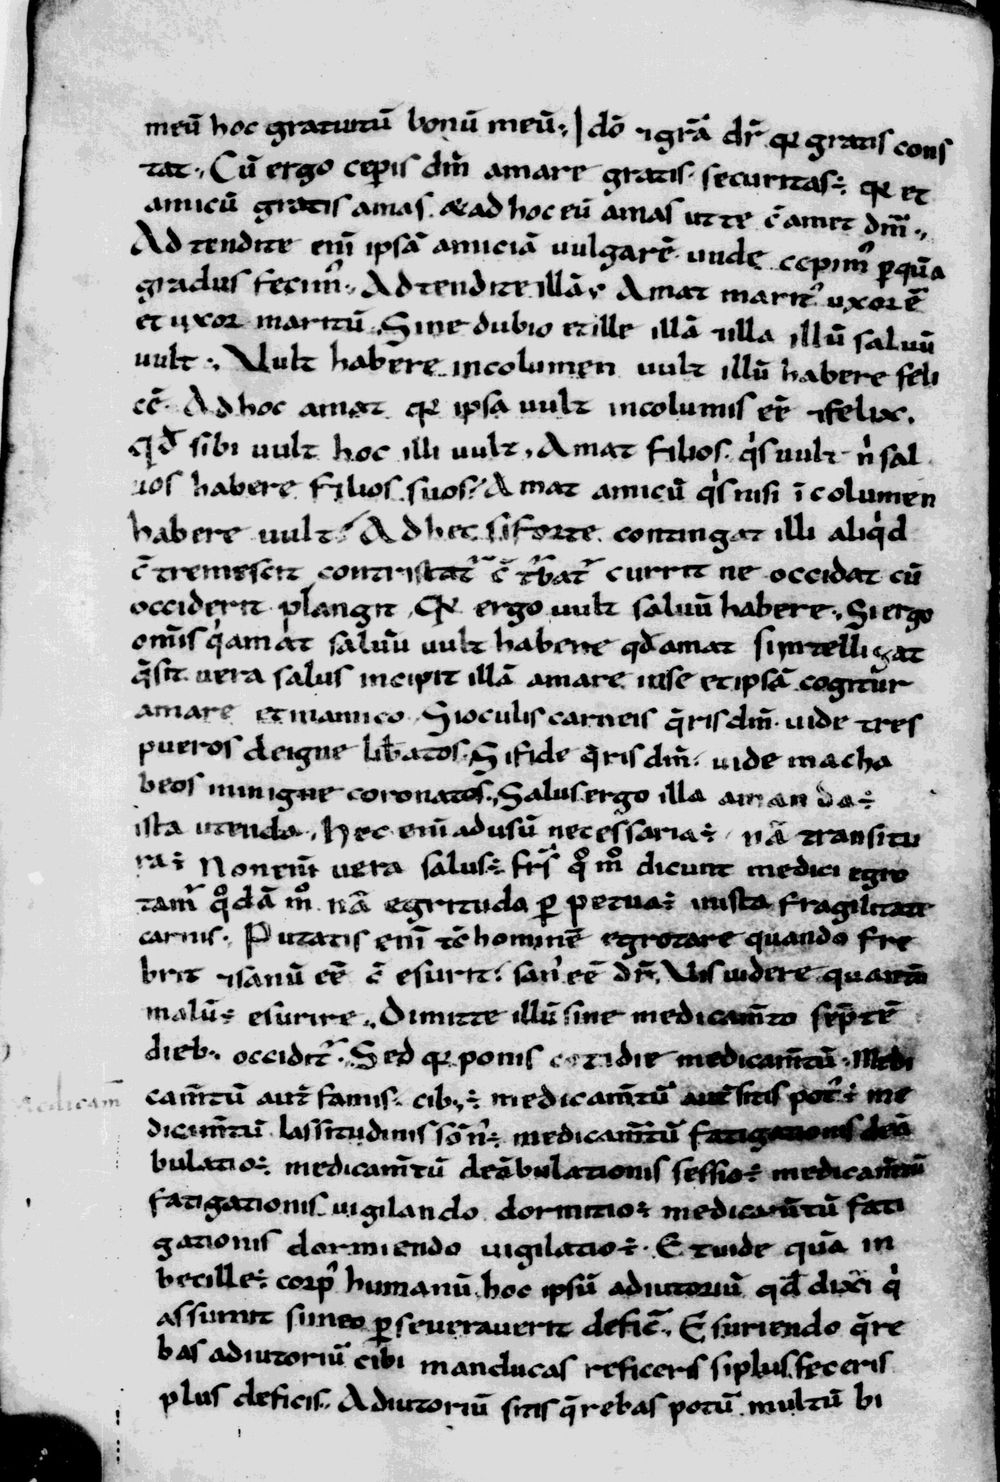 meū hoc gratuitū bonū meū; Idō ⁊ grā dr̄ qͥ gratis cons
tat., Cū ergo ceperis dm̄ amare gratis. securitas ÷; qͥ et
amicū gratis amas. & ad hoc eū amas ut te c̄ amet dm̄.,
Ad tendite enī ipsā amiciā vulgarē. unde cepim᷒ per quā a
gradus fecim᷒., Ad tendite illā, Amat marit᷒ uxorē
et uxor maritū. Sine dubio et ille illā ⁊ illa illū saluū
uult., Vult habere incolumen uult illū habere feli
cē. Ad hoc amat qͥ ipsa uult incolumis eē ⁊ felix.
qd̄ sibi uult hoc illi uult, Amat filios. qͥs uult n̄ sal
uos habere filios suos? Amat amicū qͥs nisi ī columen
habere uult? Ad hec si forte contingat illi aliqͥd
c̄ tremescit contristat᷒ c̄ t᷒bat᷒ currit ne occidat cū
occiderit plangit, Qͥ ergo uult saluū habere., Si ergo
om̄is qͥ amat saluū uult habere qd̄ amat si intelligat
q̄ sit vera salus incipit illā amare in se et ipsā cogitur
amare et in amico. Si oculis carneis q̄ris dm̄. vide tres
pueros de igne lib̄atos. Si fide q̄ris dm̄. vide macha
beos in in igne coronatos., Salus ergo illa amanda ÷
ista utenda., Hec enī ad usū necessaria ÷, nā transitu
ra ÷ Non enī vera salus ÷, fr̄s qͦ mͦ dicunt medici egro
tam᷒ qͦdā mͦ nā egrituda perpetua ÷ in ista fragilitate
carnis., Putatis enī tc̄ hominē egrotare quando fe
brit ⁊ sanū eē c̄ esurit? san᷒ eē dr̄. Vis videre quantū
malū ÷ esurire., Dimitte illū sine medicam̄to septē
dieb. occidit᷒. Sed qͥ ponis cotidie medicam̄tū. Medi
cam̄tū aut̄ famis. cib᷒ ÷, medicam̄tū aut̄ sitis pot᷒ ÷ me
dicam̄tū lassitudinis som̄n᷒ ÷. medicam̄tū fatigationis deā
bulatio ÷, medicam̄tū deābulationis sessio ÷ medicam̄tū
fatigationis vigilando dormitio ÷ medicam̄tū fati
gationis dormiendo vigilatio ÷. Et vide quā in
becille ÷ corp᷒ humanū, hoc ipsū adiutoriū qd̄ dixi qͥ
assumit si in eo perseveraverit defic̄., Esuriendo q̄re
bas adiutoriū cibi manducas reficeris si plus feceris
plus deficis. Adiutoriū sitis q̄rebas potū. multū bi